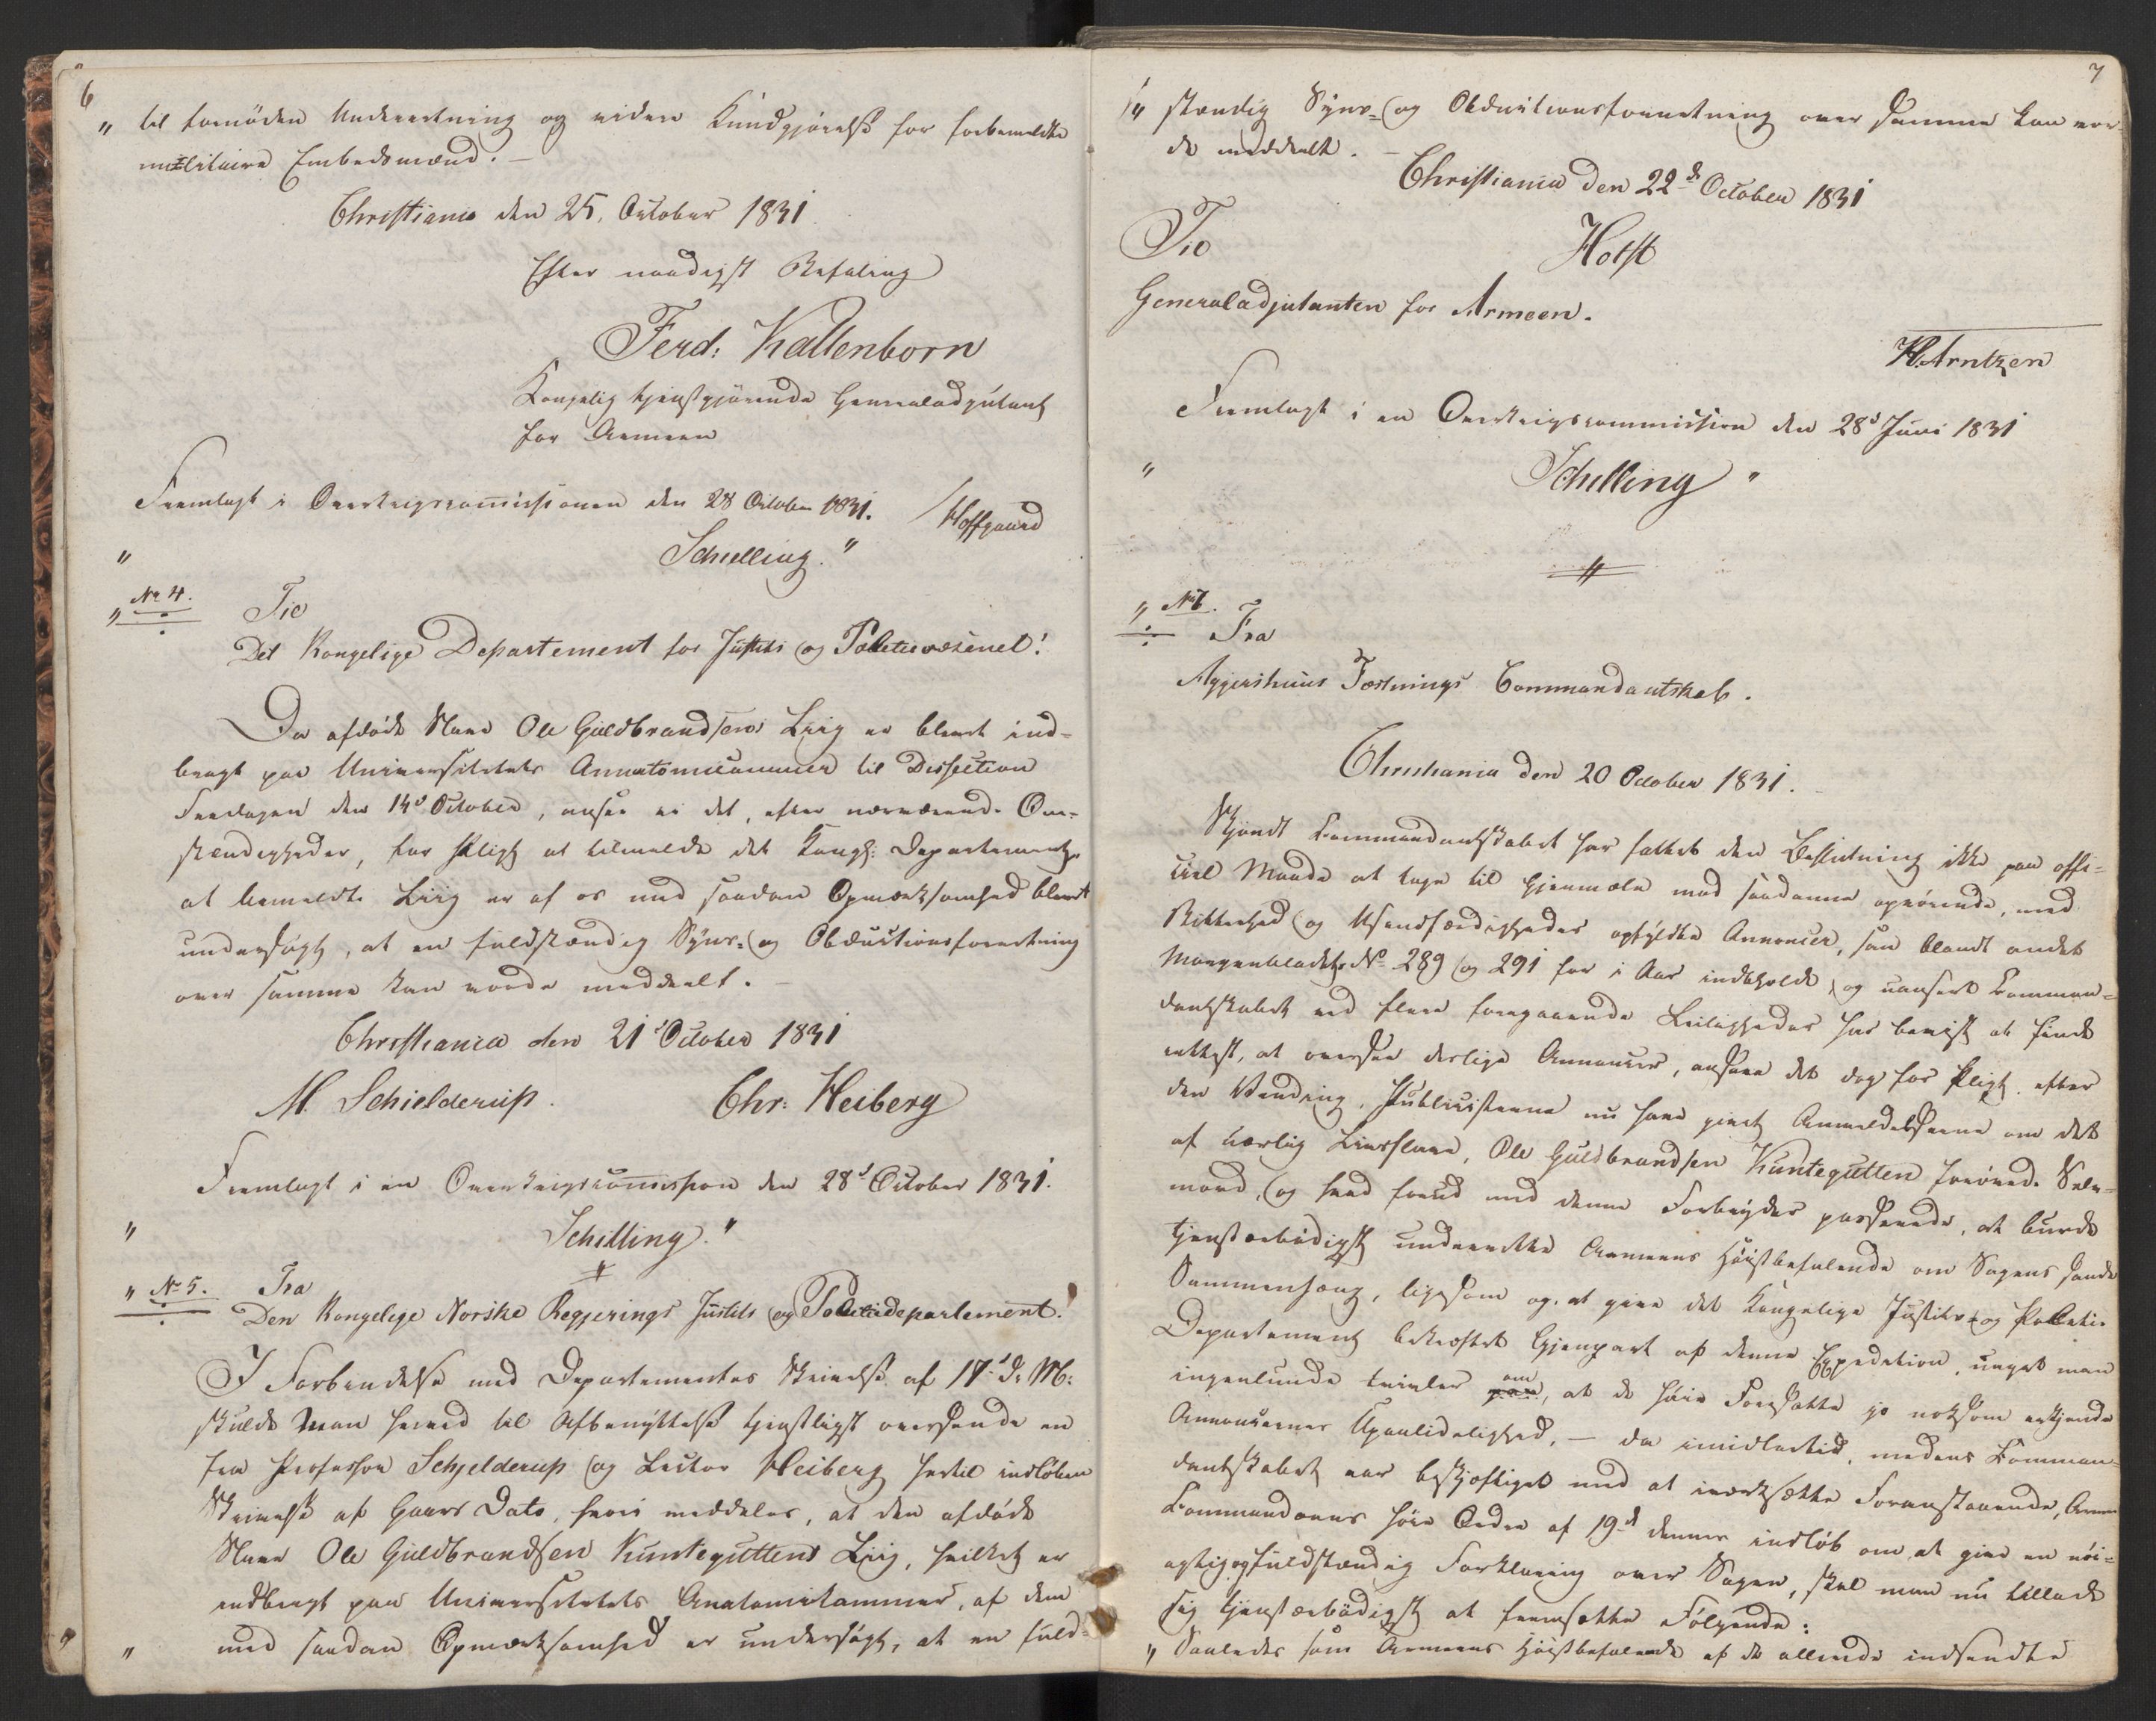 6
" til fornöden Underretning og videre Kundgjörelse for forbemeldte
militaire Embedsmænd. —
Christiania den 25. October 1831
Efter naadigst Befaling
Ferd: Kaltenborn
Kongelig tjenstgjörende Generaladjutant
for Armeen
Fremlagt i Overkrigscom̅issionen den 28 October 1831. / Hoffgaard
" Schilling. "
" No 4. Til
Det Kongelige Departement for Justits og Politievæsenet!
Da afdöde Slave Ole Guldbrandsens Liig er blevet ind-
bragt paa Universitetets Annatomicammer til Dissection
Fredagen den 14d October, ansee vi det, efter nærværende Om-
stændigheder, for Pligt at tilmelde det Kongl: Departement,
at bemeldte Liig er af os med saadan Opmærksomhed blevet
undersögt, at en fuldstændig Syns- og Obductionsforretning
over samme kan vorde meddeelt. —
Christiania den 21d October 1831
M. Schielderup. Chr: Heiberg
Fremlagt i en Overkrigscom̅ission den 28d October 1831.
" Schilling. "
" No 5. Fra
Den Kongelige Norske Regjerings Justits og Politiedepartement!
I Forbindelse med Departementets Skrivelse af 17d d: M:
skulde man herved til Afbenÿttelse tjenstligst oversende en
fra Professor Schjelderup og Lector Heiberg hertil indlöben
Skrivelse af Gaars Dato, hvori meddeles, at den afdöde
Slave Ole Guldbrandsen Kunteguttens Liig, hvilket er
indbragt paa Universitetets Anatomikammer, af dem
" med saadan Opmærksomhed er undersögt, at en fuld-
7
" stændig Syns- og Obductionsforretning over samme kan vor-
de meddeelt. —
Christiania den 22d October 1831
Til Holst
Generaladjutanten for Armeen.
H. Arntzen
Fremlagt i en Overkrigscommission den 28d Juni 1831
" Schilling "
" No 6.
Fra
Aggershuus Fæstnings Commandantskab.
Christiania den 20 October 1831.
Skjöndt Commandantskabet har fattet den Beslutning ikke paa offi-
ciel Maade at tage til Gjenmæle mod saadanne oprörende, med
Bitterhed og Usandfærdigheder opfÿldte Annoncer, som blandt andet
Morgenbladets No 289 og 291 for i Aar indeholde, og uanseet Comman-
dantskabet ved flere foregaaende Leiligheder har beviist at finde
rettest, at oversee deslige Annoncer, ansees det dog for Pligt, efter
den Vending, Publicisterne nu have givet Anmeldelserne om det
af uærlig Livsslave, Ole Guldbrandsen Kuntegutten prövede Selv-
mord, og hvad forud med denne Forbrÿder passerede, at burde
tjenstærbödigst underrette Armeens Höistbefalende om Sagens sande
Sammenhæng, ligesom og at give det Kongelige Justits- og Politie-
Departement bekræftet Gjenpart af denne Expedition, uagtet man
ingenlunde tvivler om, at de höie Foresatte jo noksom erkjende
Annoncernes Upaalidelighed, — da imidlertid, medens Comman-
dantskabet var beskjæftiget med at iværksætte Foranstaaende, Armee
Commandoens höie Ordre af 19d dennes indlöb om at give en nöi-
agtig og fuldstændig Forklaring over Sagen, skal man nu tillade
sig tjenstærbödigst at fremsætte Fölgende:
" Saaledes som Armeens Höistbefalende af de allerede indsendte